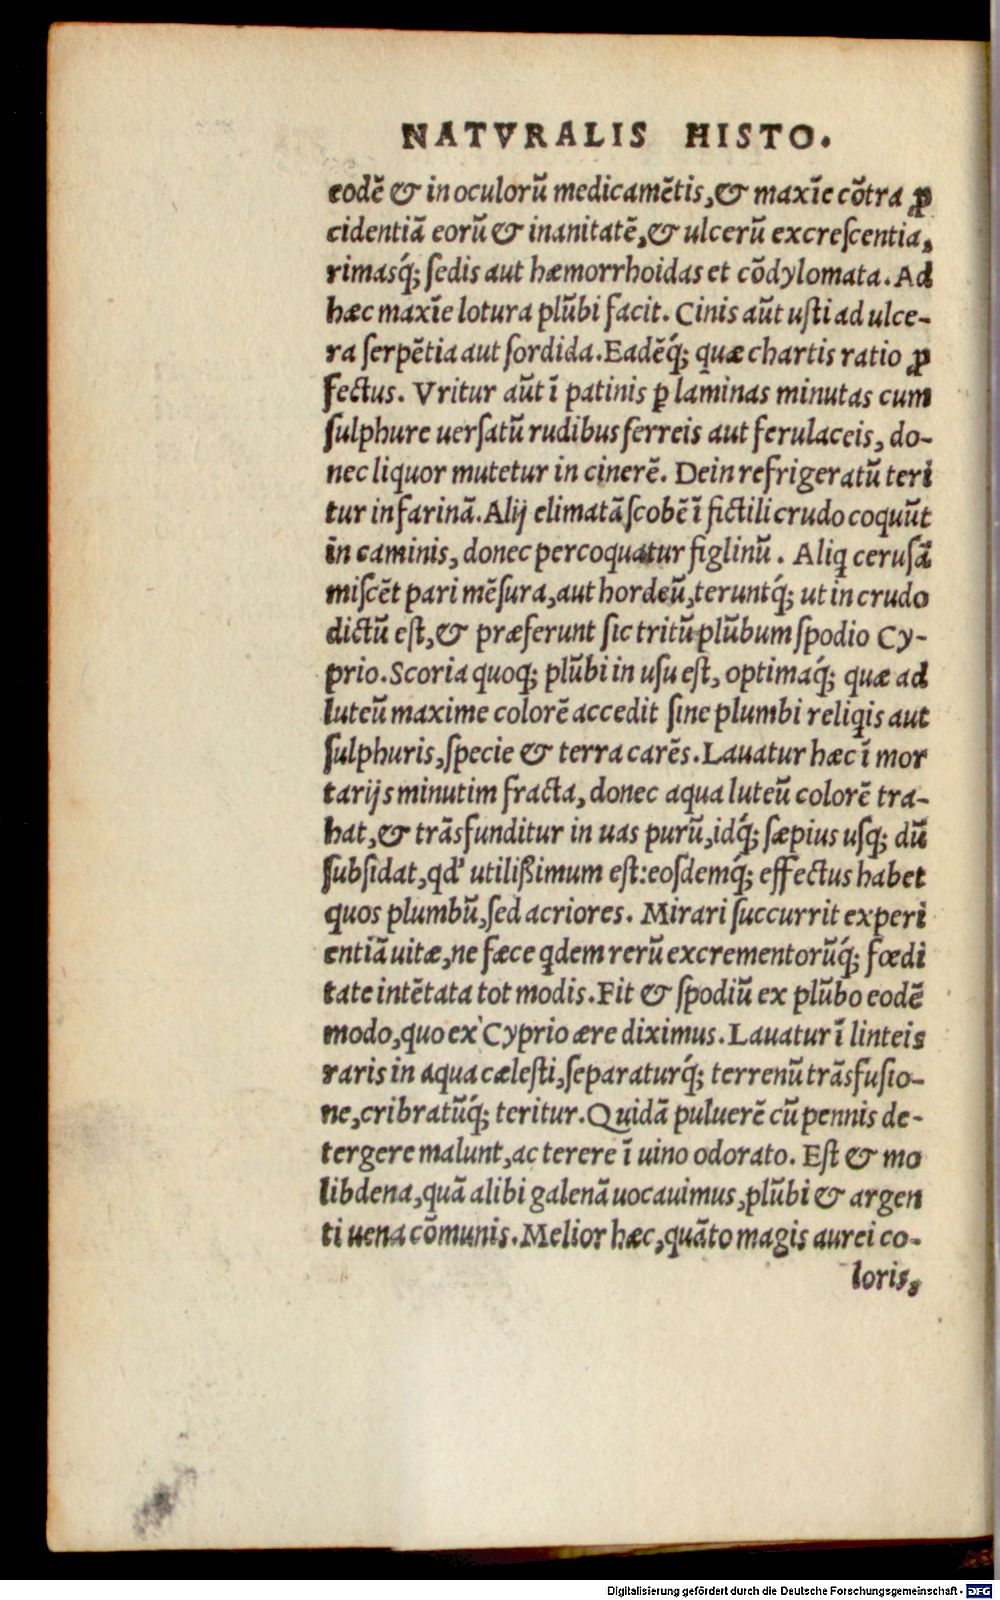 NATVRALIS HISTO.
eodē & in oculorū medicamētis, & maxīe cōtra ꝓ
cidentiā eorū & inanitatē, & ulcerū excreſcentia,
rimasq́; ſedis aut hæmorrhoidas et cōdylomata. Ad
hæc maxīe lotura plūbi facit. Cinis aūt uſti ad ulce-
ra ſerpētia aut ſordida. Eadēq́; quæ chartis ratio ꝓ
fectus. Vritur aūt ī patinis ꝑ laminas minutas cum
ſulphure uerſatū rudibus ferreis aut ferulaceis, do-
nec liquor mutetur in cinerē. Dein refrigeratū teri
tur in farinā. Alij elimatā ſcobē ī fictili crudo coquūt
in caminis, donec percoquatur figlinū. Aliq̃ ceruſā
miſcēt pari mēſura, aut hordeū, teruntq́; ut in crudo
dictū eſt, & præferunt ſic tritū plūbum ſpodio Cy-
prio. Scoria quoq; plūbi in uſu eſt, optimaq́; quæ ad
luteū maxime colorē accedit ſine plumbi reliq̃is aut
ſulphuris, ſpecie & terra carēs. Lauatur hæc ī mor
tarijs minutim fracta, donec aqua luteū colorē tra-
hat, & trāsfunditur in uas purū, idq́; ſæpius uſq; dū
ſubſidat, qd' utilißimum eſt: eoſdemq́; effectus habet
quos plumbū, ſed acriores. Mirari ſuccurrit experi
entiā uitæ, ne fæce q̃dem rerū excrementorūq́; fœdi
tate intētata tot modis. Fit & ſpodiū ex plūbo eodē
modo, quo ex Cyprio ære diximus. Lauatur ī linteis
raris in aqua cæleſti, ſeparaturq́; terrenū trāsfuſio-
ne, cribratūq́; teritur. Quidā puluerē cū pennis de-
tergere malunt, ac terere ī uino odorato. Eſt & mo
libdena, quā alibi galenā uocauimus, plūbi & argen
ti uena cōmunis. Melior hæc, quāto magis aurei co-
loris,
Digitalisierung gefördert durch die Deutsche Forschungsgemeinschaft - DFG